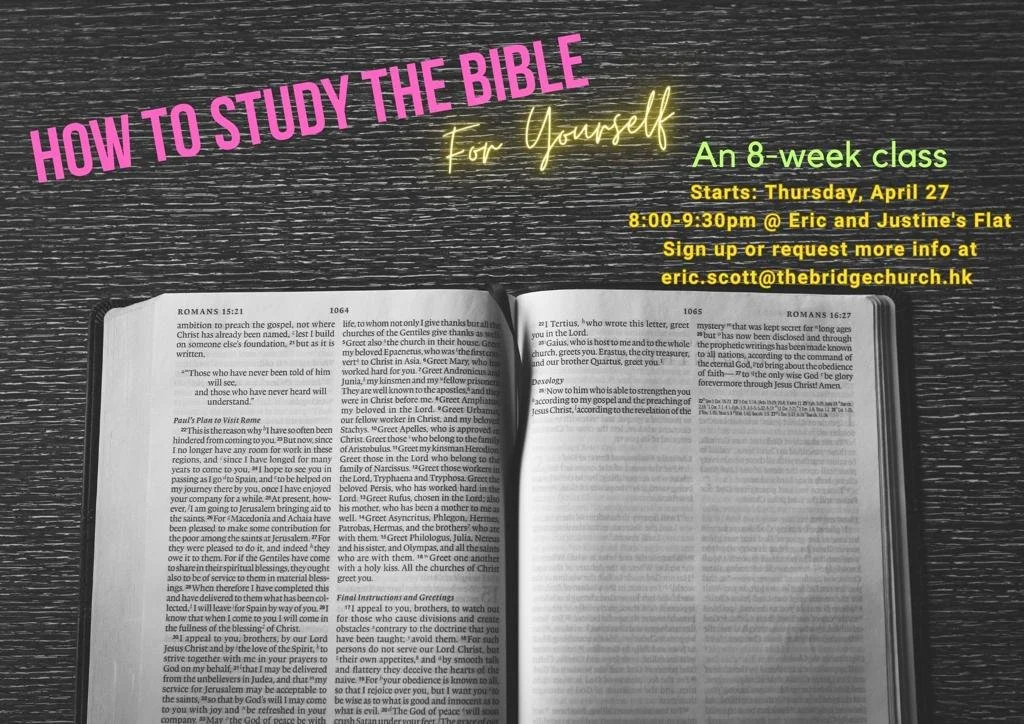 HOW TO STUDY THE BIBLE
For Yourself
An 8-week class
Starts: Thursday, April 27
8:00-9:30pm @ Eric and Justine's Flat
Sign up or request more info at
eric.scott@thebridgechurch.hk
ROMANS 15:21
1064
ambition to preach the gospel, not where
Christ has already been named, lest I build
on someone else's foundation, 21 but as it is
written,
"Those who have never been told of him
will see,
and those who have never heard will
understand."
Paul's Plan to Visit Rome
22 This is the reason why I have so often been
hindered from coming to you. 23 But now, since
I no longer have any room for work in these
regions, and since I have longed for many
years to come to you, 24 I hope to see you in
passing as I go to Spain, and to be helped on
my journey there by you, once I have enjoyed
your company for a while. 25 At present, how-
ever, I am going to Jerusalem bringing aid to
the saints. 26 For Macedonia and Achaia have
been pleased to make some contribution for
the poor among the saints at Jerusalem. 27 For
they were pleased to do it, and indeed they
owe it to them. For if the Gentiles have come
to share in their spiritual blessings, they ought
also to be of service to them in material bless-
ings. 28 When therefore I have completed this
and have delivered to them what has been col-
lected, I will leave for Spain by way of you. 29 I
know that when I come to you I will come in
the fullness of the blessing of Christ.
30 I appeal to you, brothers, by our Lord
Jesus Christ and by the love of the Spirit, to
strive together with me in your prayers to
God on my behalf, 31 that I may be delivered
from the unbelievers in Judea, and that my
service for Jerusalem may be acceptable to
the saints, 32 so that by God's will I may come
to you with joy and be refreshed in your
company. 33 May the God of peace be with
life, to whom not only I give thanks but all the
churches of the Gentiles give thanks as well.
5 Greet also the church in their house. Greet
my beloved Epaenetus, who was the first con-
vert to Christ in Asia. 6 Greet Mary, who has
worked hard for you. 7 Greet Andronicus and
Junia, my kinsmen and my fellow prisoners.
They are well known to the apostles, and they
were in Christ before me. 8 Greet Ampliatus,
my beloved in the Lord. 9 Greet Urbanus,
our fellow worker in Christ, and my beloved
Stachys. 10 Greet Apelles, who is approved in
Christ. Greet those who belong to the family
of Aristobulus. 11 Greet my kinsman Herodion.
Greet those in the Lord who belong to the
family of Narcissus. 12 Greet those workers in
the Lord, Tryphaena and Tryphosa. Greet the
beloved Persis, who has worked hard in the
Lord. 13 Greet Rufus, chosen in the Lord; also
his mother, who has been a mother to me as
well. 14 Greet Asyncritus, Phlegon, Hermes,
Patrobas, Hermas, and the brothers who are
with them. 15 Greet Philologus, Julia, Nereus
and his sister, and Olympas, and all the saints
who are with them. 16 Greet one another
with a holy kiss. All the churches of Christ
greet you.
Final Instructions and Greetings
17 I appeal to you, brothers, to watch out
for those who cause divisions and create
obstacles contrary to the doctrine that you
have been taught; avoid them. 18 For such
persons do not serve our Lord Christ, but
their own appetites, and by smooth talk
and flattery they deceive the hearts of the
naive. 19 For your obedience is known to all,
so that I rejoice over you, but I want you to
be wise as to what is good and innocent as to
what is evil. 20 The God of peace will soon
crush Satan under your feet. The grace of our
1065
ROMANS 16:27
22 I Tertius, who wrote this letter, greet
you in the Lord.
23 Gaius, who is host to me and to the whole
church, greets you. Erastus, the city treasurer,
and our brother Quartus, greet you.
Doxology
25 Now to him who is able to strengthen you
according to my gospel and the preaching of
Jesus Christ, according to the revelation of the
mystery that was kept secret for long ages
26 but has now been disclosed and through
the prophetic writings has been made known
to all nations, according to the command of
the eternal God, to bring about the obedience
of faith— 27 to the only wise God be glory
forevermore through Jesus Christ! Amen.